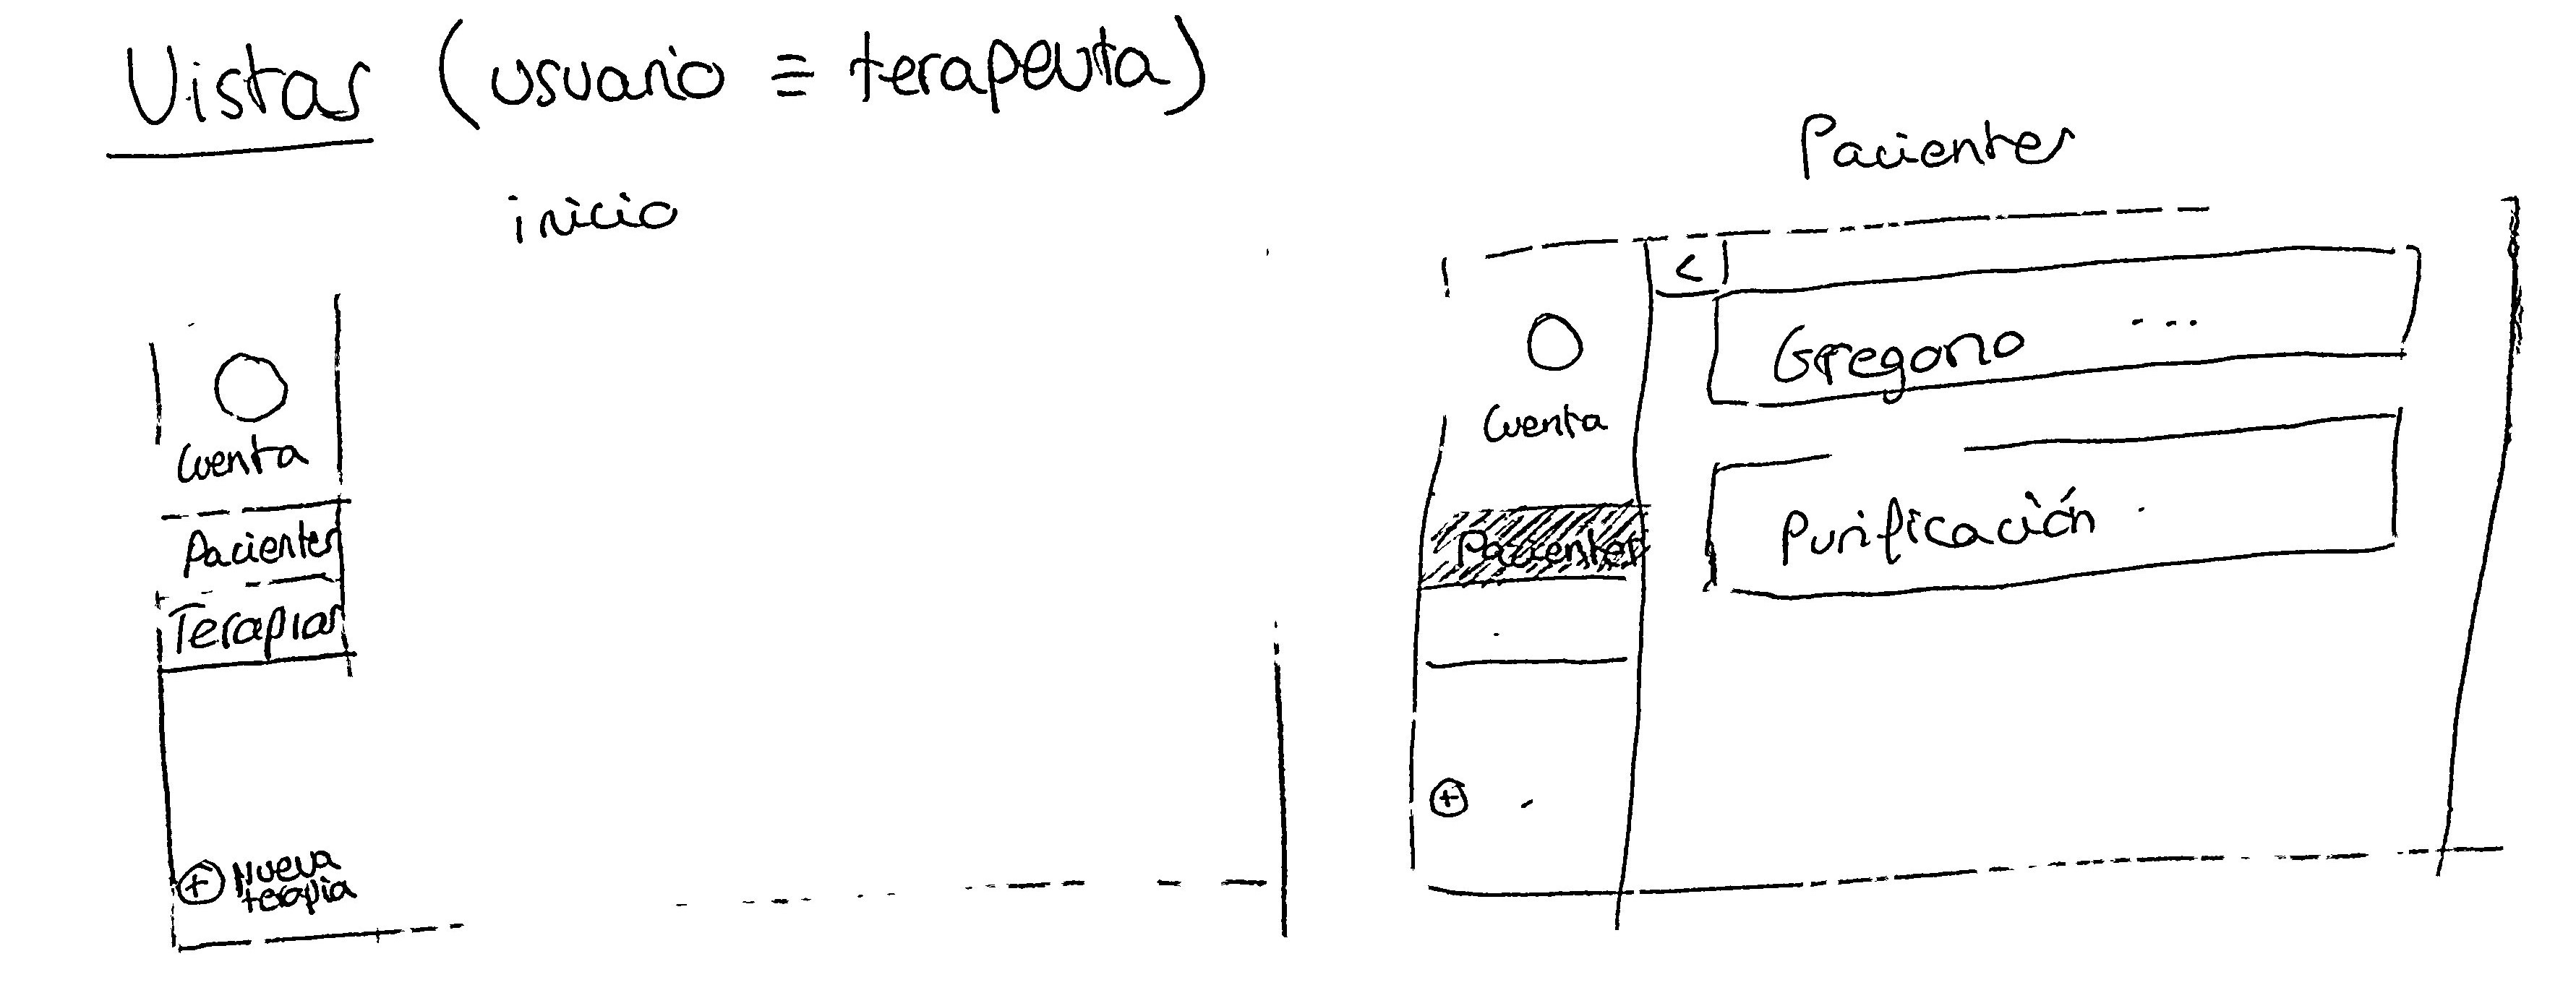 Vistas (usuario ≡ terapeuta)
inicio
Cuenta
Pacientes
Terapias
+ Nueva
terapia
Pacientes
<
Cuenta
Pacientes
+
Gregorio ...
Purificación